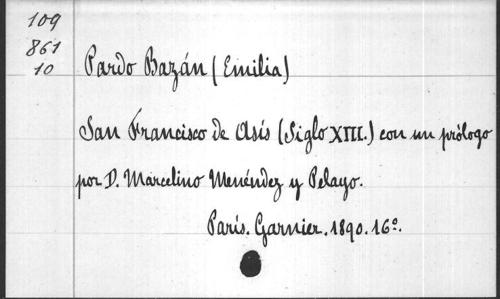 109
861
10
Pardo Bazán (Emilia)
San Francisco de Asís (Siglo XIII.) con un prólogo
por D. Marcelino Menéndez y Pelayo.
París. Garnier. 1890. 16º.